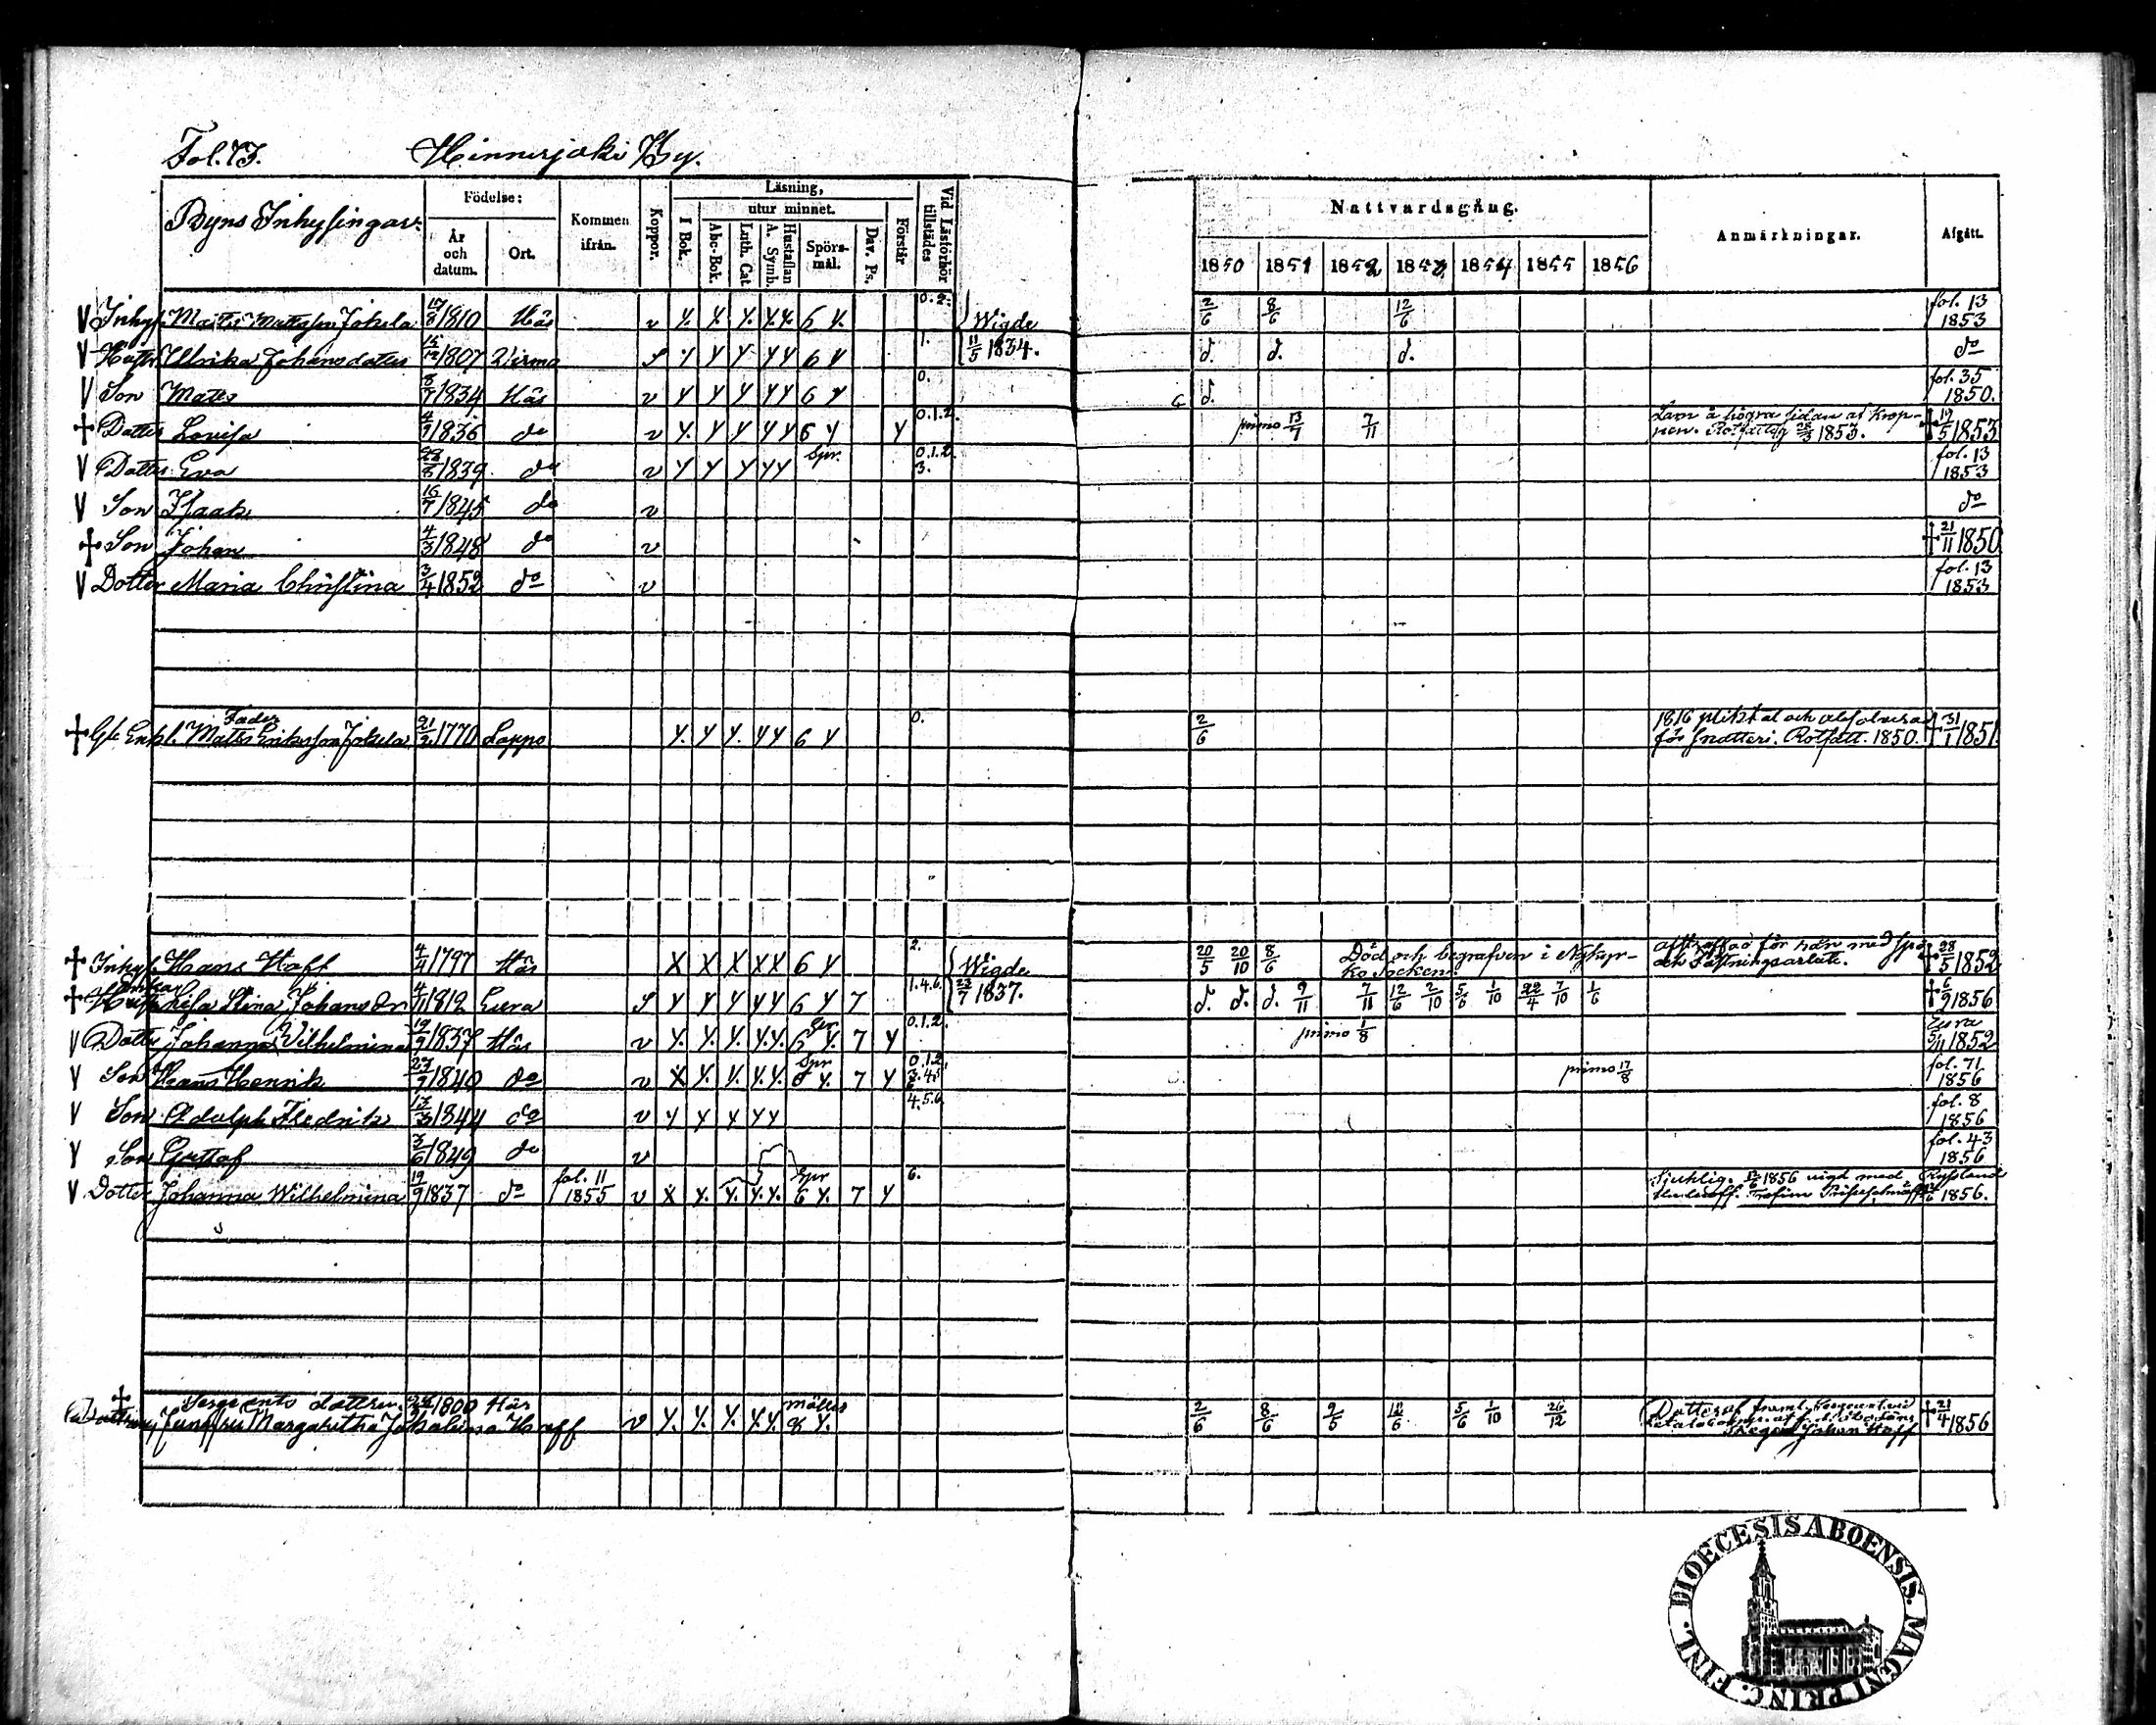 Fol. 73. Hinnerjoki By.
Byns Inhysingar.
Födelse:
År och datum.
Ort.
Kommen ifrån.
Koppor.
Läsning,
I Bok.
utur minnet.
Abc-Bok.
Luth. Cat
A. Symb.
Hustaflan
Spörs-mål.
Dav. Ps.
Förstår
Vid Läsförhör tillstädes
Nattvardsgång.
1850 1851 1852 1853 1854 1855 1856
Anmärkningar.
Afgått.
V Inhys. Matts Mattsson Jokela 17/8 1810 Här v Y. Y. Y. Y.Y. 6 Y. 0.2. Wigde 2/6 8/6 12/6 fol. 13 1853
V Hustr. Ulrika Johansdotter 15/12 1807 Virmo S Y Y Y Y Y 6 Y 1. 11/5 1834. d. d. d. do
V Son Matts 8/7 1834 Här v Y Y Y Y Y 6 Y 0. d. fol. 35 1850.
+ Dotter Lovisa 4/9 1836 do v Y. Y Y Y Y 6 Y Y 0.1.2. primo 13/7 7/11 Lam å högra sidan af Krop-
pen. 1853. + 19/5 1853
V Dotter Eva 28/8 1839 do v Y Y Y Y Y Spr. 0.1.2. 3. fol. 13 1853
V Son Isaak 16/7 1845 do v do
+ Son Johan 4/3 1848 do v + 21/11 1850
V Dotter Maria Christina 3/4 1852 do v fol. 13 1853
Fader
+ Enkl. Matts Eriksson Jokela 21/2 1770 Lappo Y. Y Y. Y Y 6 Y 0. 2/6 1816 och
för snatteri. Rotfatt. 1850. + 31/1 1851.
+ Inhys. Hans Haff 4/4 1797 Här X X X X X 6 Y 2. Wigde 20/5 20/10 8/6 Död och begrafven i Nykyr-
ko Socken. för rån med + 28/5 1852
Enkan
+ Hustr. Lisa Stina Johansdr 4/11 1812 Eura S Y Y Y Y Y 6 Y 7 1.4.6. 23/7 1837. d. d. d. 9/11 7/11 12/6 2/10 5/6 1/10 22/4 7/10 1/6 + 6/9 1856
V Dotter Johanna Vilhelmina 19/9 1837 Här v Y. Y. Y. Y.Y. 6 Y. Spr 7 Y 0.1.2. primo 1/8 Eura 5/11 1852
V Son Hans Henrik 27/9 1840 do v X Y. Y. Y.Y. Spr 6 Y. 7 Y 0.1.2. 3.4.5. primo 17/8 fol. 71 1856
V Son Adolph Fredrik 13/3 1844 do v Y Y Y Y Y 4.5.6 fol. 8 1856
V Son Gustaf 3/6 1849 do v fol. 43 1856
V Dotter Johanna Wilhelmina 19/9 1837 do fol. 11 1855 v X Y. Y. Y.Y. Spr 6 Y. 7 Y 6. Sjuklig. 1856 vigd med
Trofim Ryssland 1856.
+ Sergeants dottern 1800 Här
Jungfru Margaretha Haff v Y. Y. Y. Y.Y. 8 Y. 2/6 8/6 9/5 12/6 5/6 1/10 26/12 Dotter af
Johan Haff + 21/4 1856
DIOECESIS ABOENSIS. MAGNI PRINC. FINL.